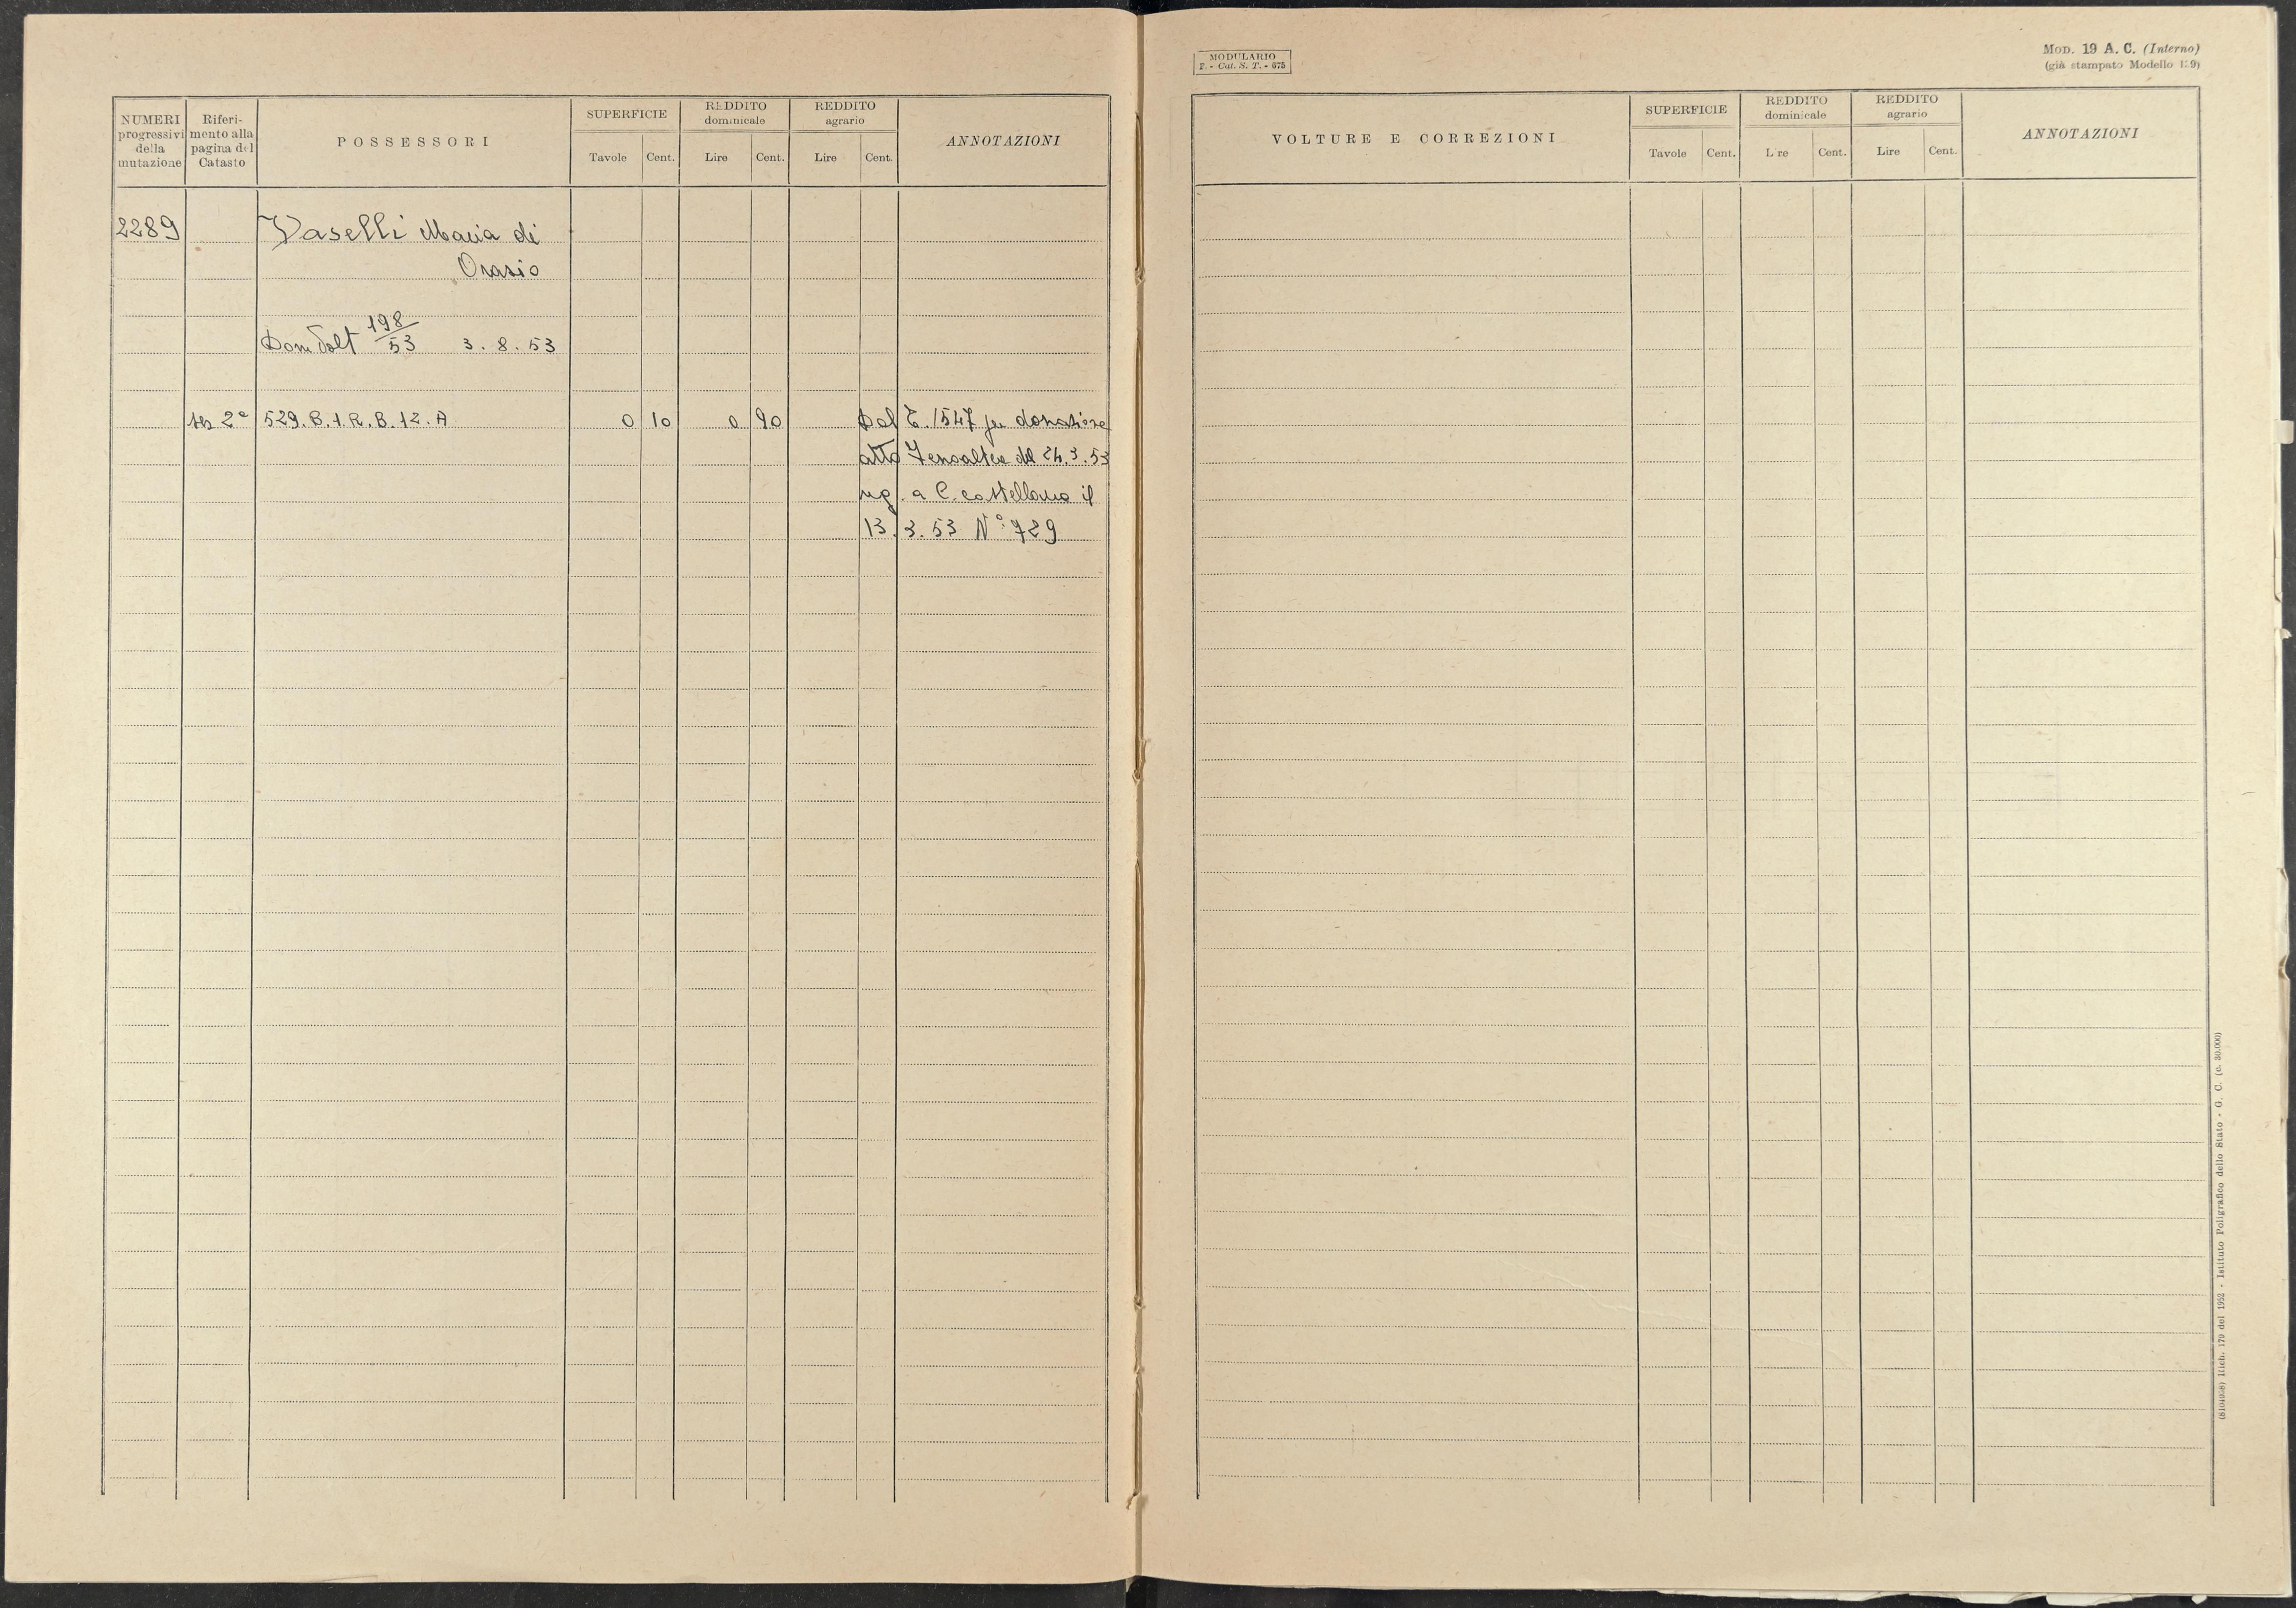 NUMERI
progressivi
della
mutazione
Riferi-
mento alla
pagina del
Catasto
POSSESSORI
SUPERFICIE
Tavole
Cent.
REDDITO
dominicale
Lire
Cent.
REDDITO
agrario
Lire
Cent.
ANNOTAZIONI
2289
Vaselli Maria di
Orazio
Dom Volt 198/53 3.8.53
2ª 529.B.1.R.B.12.A 0 10 0 90 Dal E. 1547 per donazione
atto del 24.3.53
reg. a C. castellana il
13.3.53 N° 729
MODULARIO
F. - Cat. S. T. - 675
MOD. 19 A. C. (Interno)
(già stampato Modello 139)
VOLTURE E CORREZIONI
SUPERFICIE
Tavole
Cent.
REDDITO
dominicale
L re
Cent.
REDDITO
agrario
Lire
Cent.
ANNOTAZIONI
Rich. 179 del 1952 - Istituto Poligrafico dello Stato - G. C. (c. 30.000)